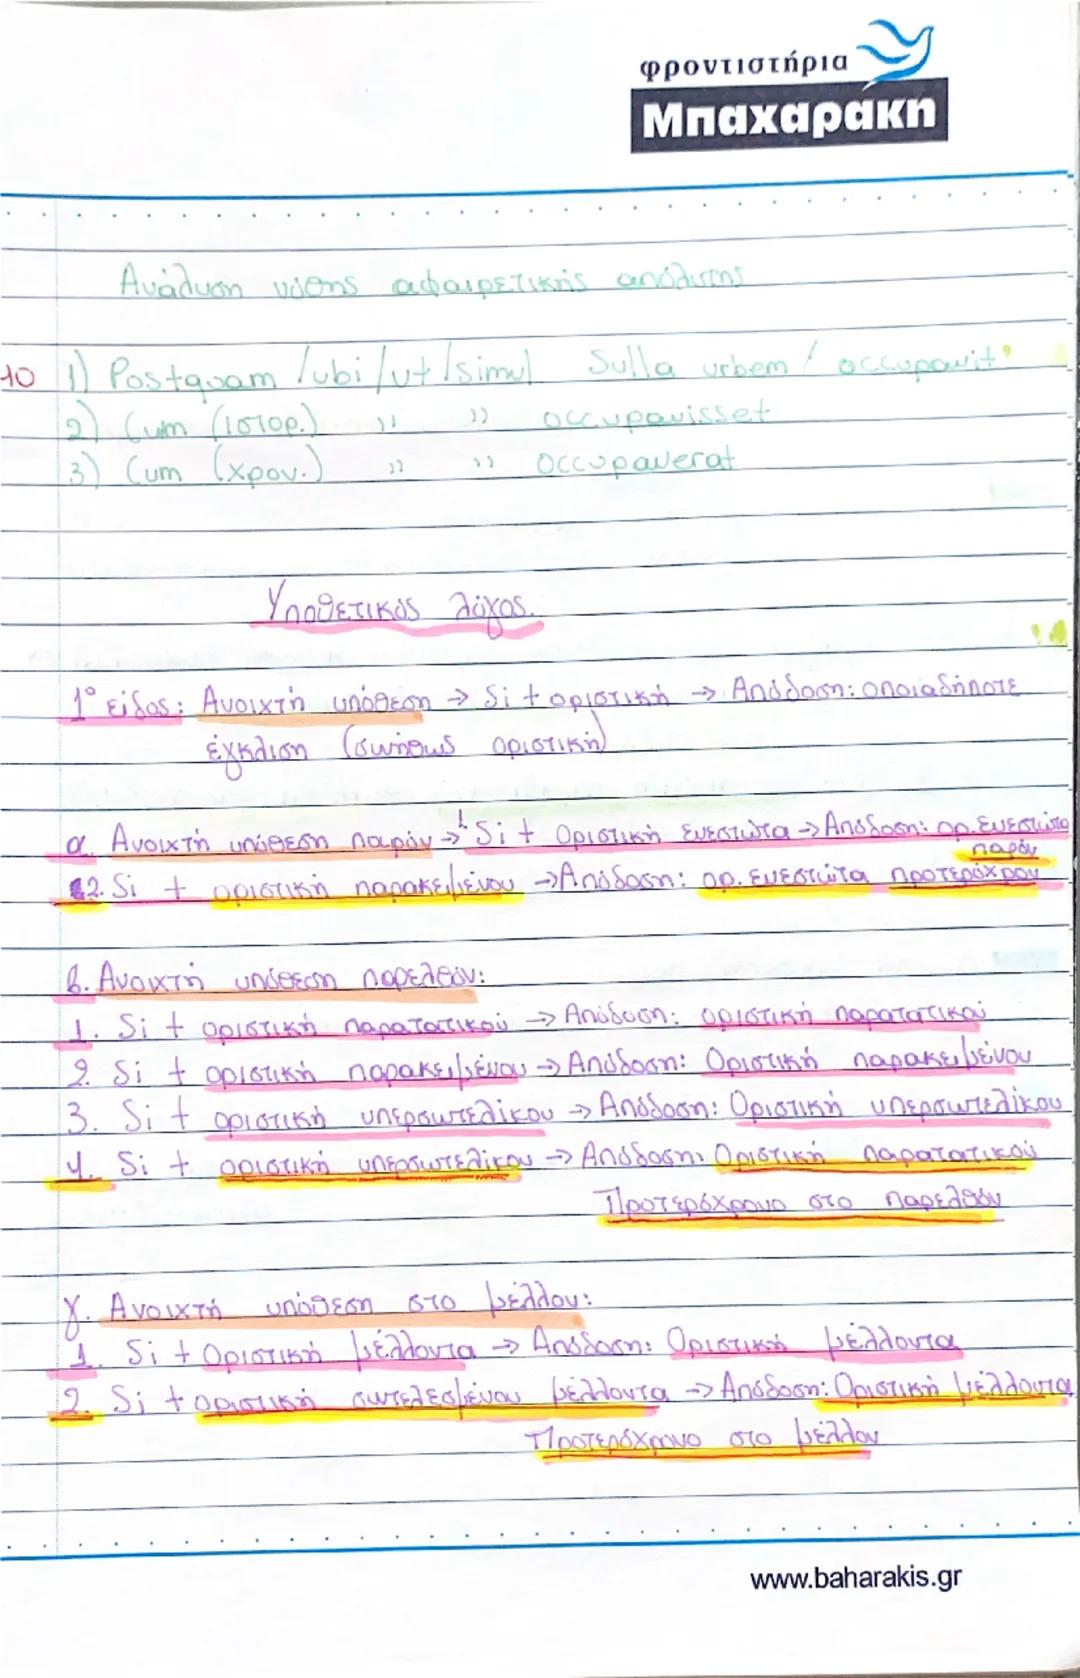 φροντιστήρια
Μπαχαράκη
Ανάλυση νόθης αφαιρετικής απόλυτης
10 1) Postquam /ubi/ut/simul Sulla urbem / occupavit
2) Cum (ιστορ.) " " occupavisset
3) Cum (χρον.) " " occupaverat
Υποθετικός λόγος.
1° είδος: Ανοιχτή υπόθεση → Si + οριστική → Απόδοση: οποιαδήποτε
έγκλιση (συνήθως οριστική)
α. Ανοιχτή υπόθεση παρόν → 1. Si + Οριστική Ενεστώτα → Απόδοση: ορ. Ενεστώτα
παρόν
2. Si + οριστική παρακειμένου → Απόδοση: ορ. Ενεστώτα προτερόχρον
β. Ανοιχτή υπόθεση παρελθόν:
1. Si + οριστική παρατατικού → Απόδοση: οριστική παρατατικού
2. Si + οριστική παρακειμένου → Απόδοση: Οριστική παρακειμένου
3. Si + οριστική υπερσυντελίκου → Απόδοση: Οριστική υπερσυντελίκου
4. Si + οριστική υπερσυντελίκου → Απόδοση: Οριστική παρατατικού
Προτερόχρονο στο παρελθόν
γ. Ανοιχτή υπόθεση στο μέλλον:
1. Si + Οριστική μέλλοντα → Απόδοση: Οριστική μέλλοντα
2. Si + οριστική συντελεσμένου μέλλοντα → Απόδοση: Οριστική μέλλοντα
Προτερόχρονο στο μέλλον
www.baharakis.gr